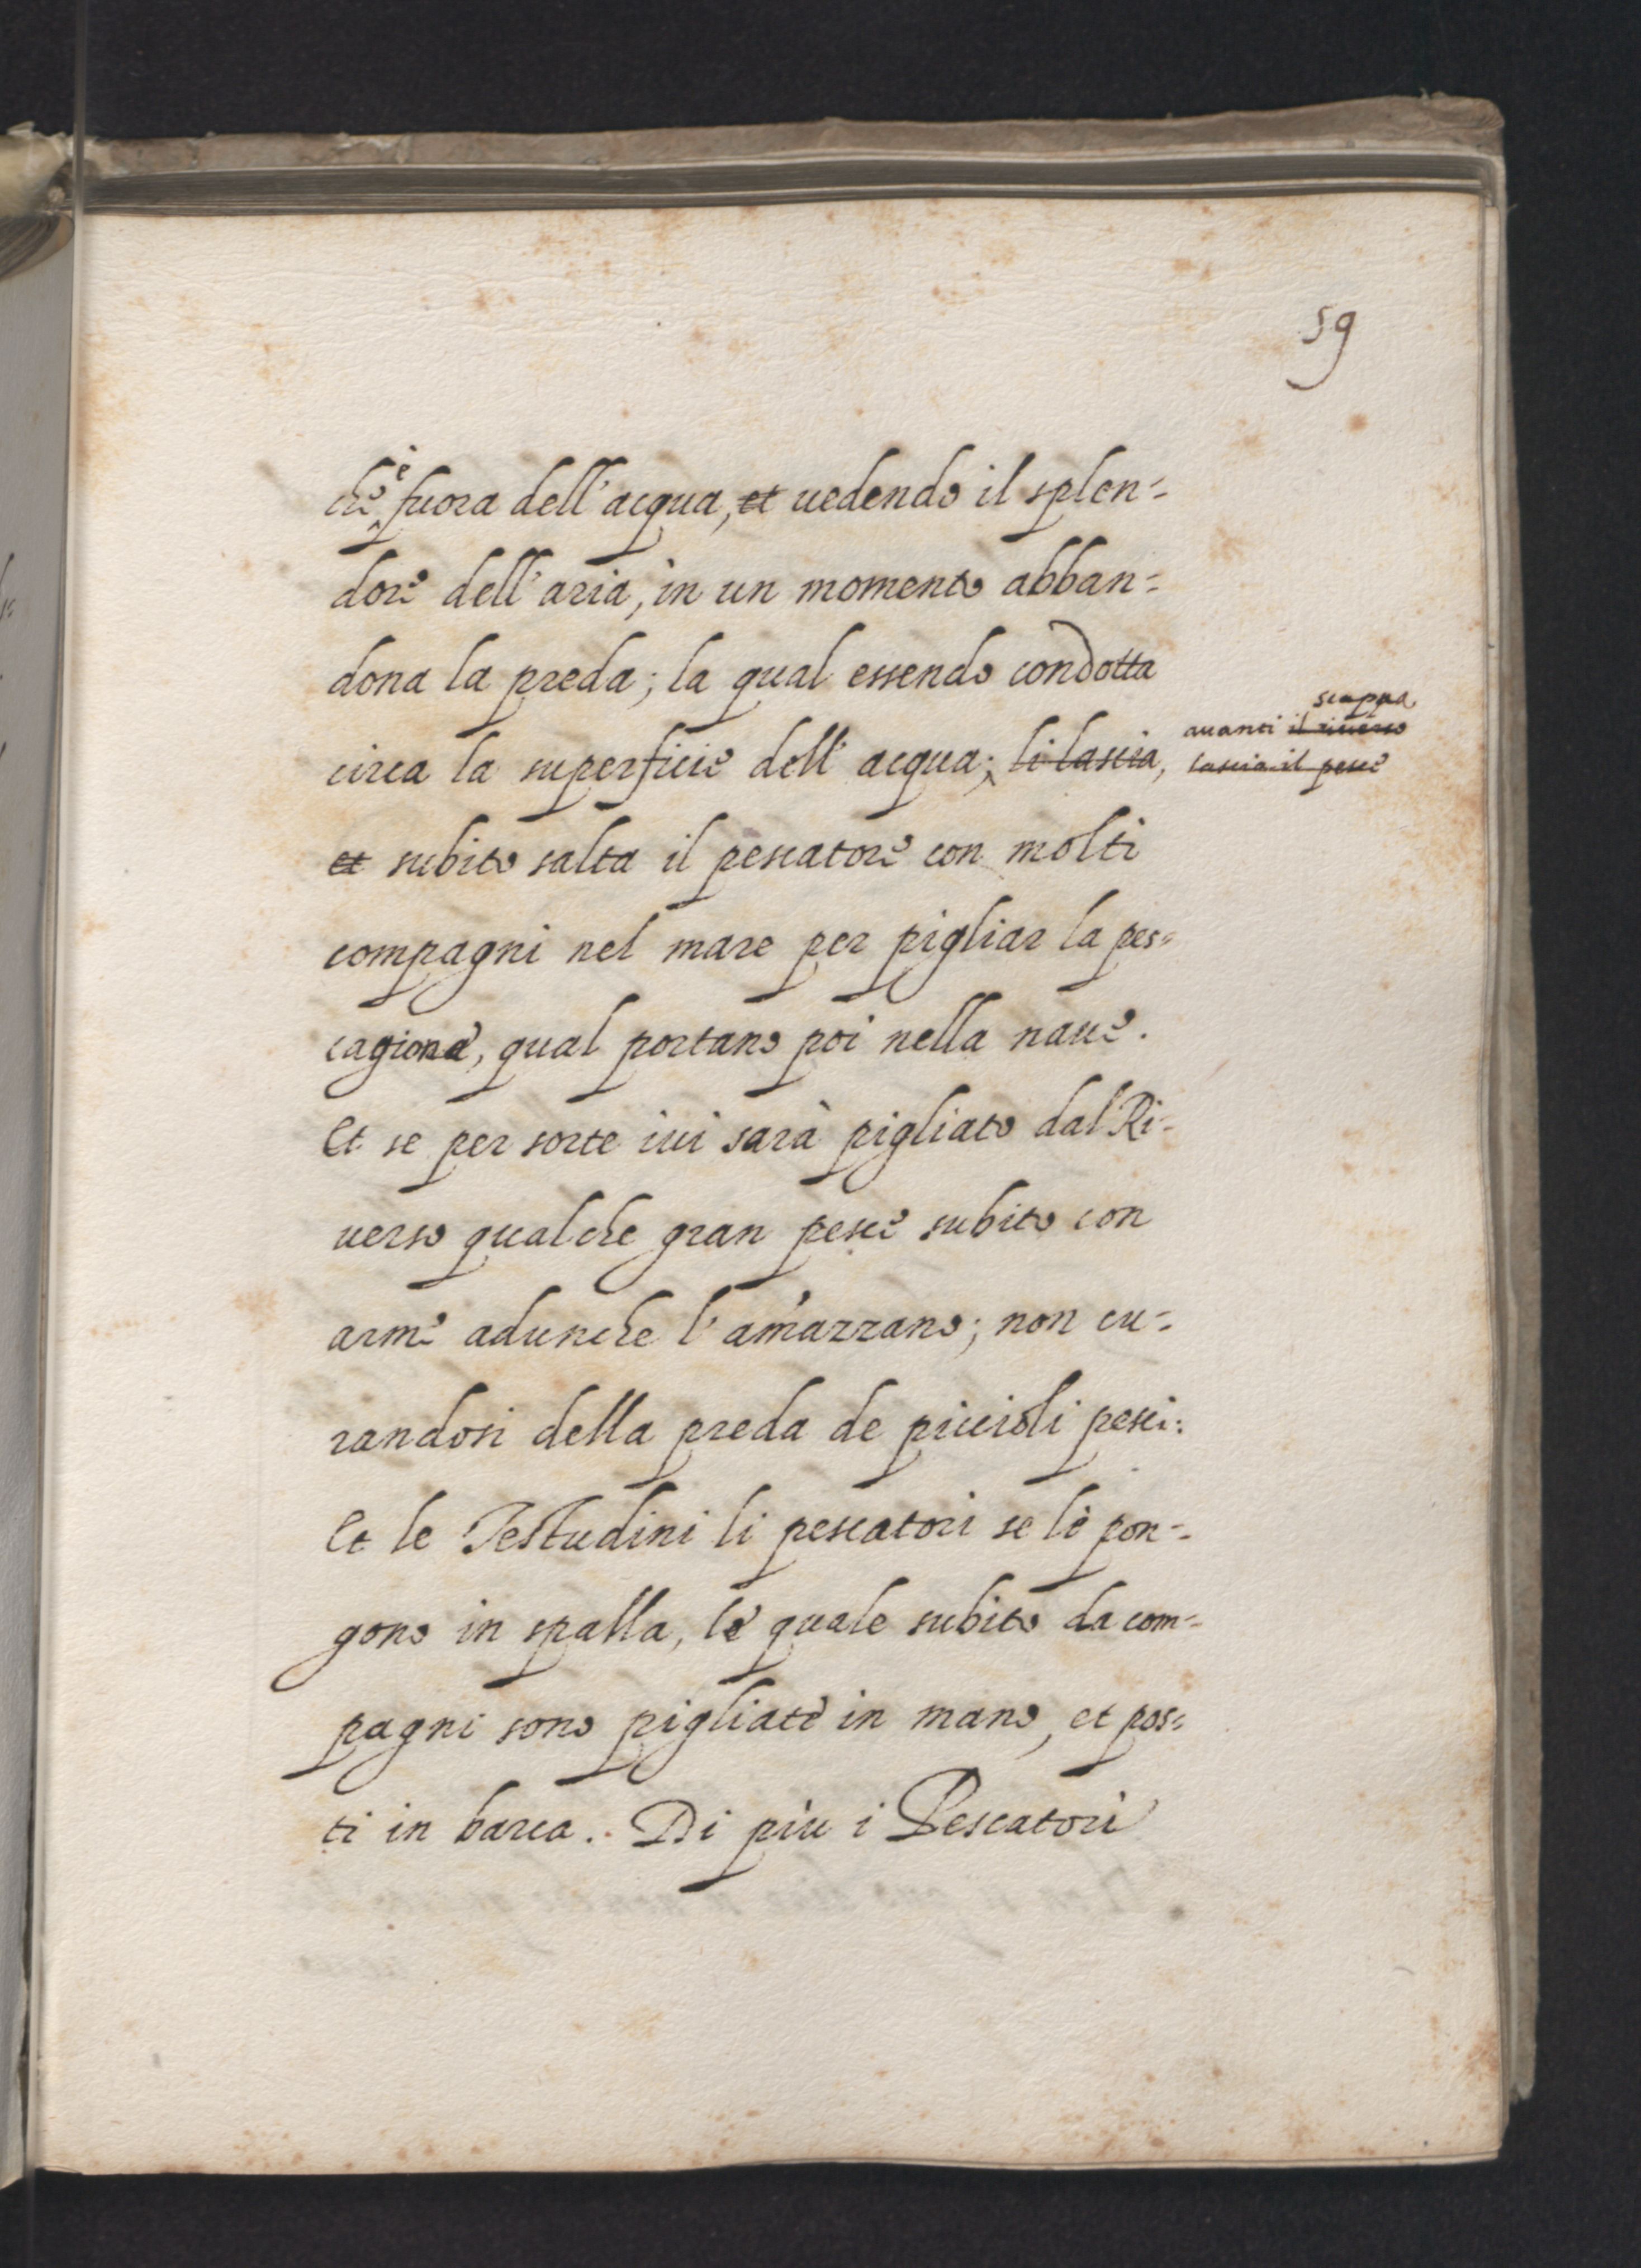 59
che è fuora dell'acqua, et uedendo il splen=
dore dell'aria, in un momento abban=
dona la preda; la qual essendo condotta
scappa
auanti il riuerso
circa la superficie dell'acqua; li lascia,
lascia il pesce
et subito salta il pescatore con molti
compagni nel mare per pigliar la pes=
cagione, qual portano poi nella naue.
Et se per sorte iui sarà pigliato dal Ri=
uerso qualche gran pesce subito con
arme adunche l'amazzano; non cu=
randosi della preda de piccioli pesci:
Et le Testudini li pescatori se le pon=
gono in spalla, le quale subito da com=
pagni sono pigliate in mano, et pos=
ti in barca. Di più i Pescatori